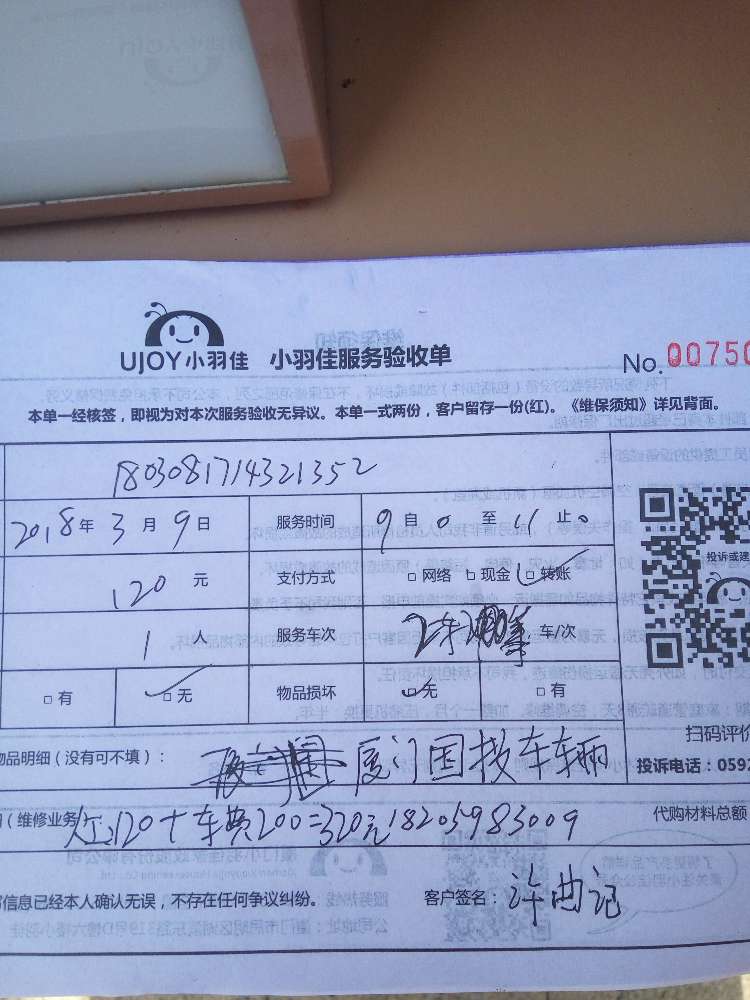 UJOY小羽佳 小羽佳服务验收单 No. 00750
本单一经核签，即视为对本次服务验收无异议。本单一式两份，客户留存一份(红)。《维保须知》详见背面。
1803081714321352
2018年 3月 9日 服务时间 9自 0至 11止
120元 支付方式 □网络 □现金 □转账
1人 服务车次 车/次
□有 □无 物品损坏 □无 □有
投诉或建
扫码评价
物品明细（没有可不填）： 厦门国投车辆
投诉电话：0592
（维修业务 120+车费200=320元18205983009 代购材料总额
信息已经本人确认无误，不存在任何争议纠纷。 客户签名：许曲记